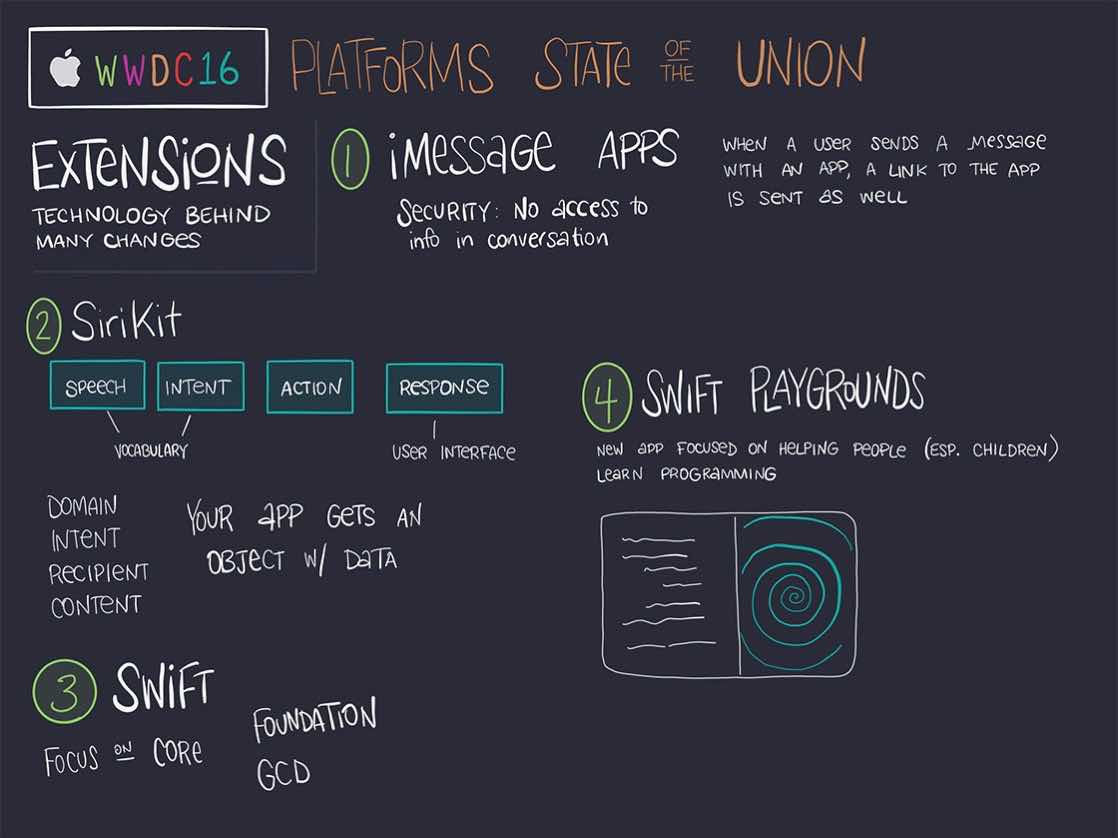 WWDC16 PLATFORMS STATE OF THE UNION
EXTENSIONS
TECHNOLOGY BEHIND
MANY CHANGES
1 iMESSAGE APPS
SECURITY: NO ACCESS TO
INFO IN CONVERSATION
WHEN A USER SENDS A MESSAGE
WITH AN APP, A LINK TO THE APP
IS SENT AS WELL
2 SiriKit
SPEECH INTENT ACTION RESPONSE
VOCABULARY USER INTERFACE
DOMAIN
INTENT
RECIPIENT
CONTENT
YOUR APP GETS AN
OBJECT W/ DATA
3 SWIFT
FOCUS ON CORE
FOUNDATION
GCD
4 SWIFT PLAYGROUNDS
NEW APP FOCUSED ON HELPING PEOPLE (ESP. CHILDREN)
LEARN PROGRAMMING